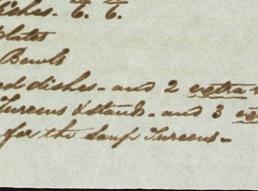 dishes - T. T.
Plates
Bowls
dishes - and 2 extra
Tureens & Stands - and 3
for the Soup Tureens -